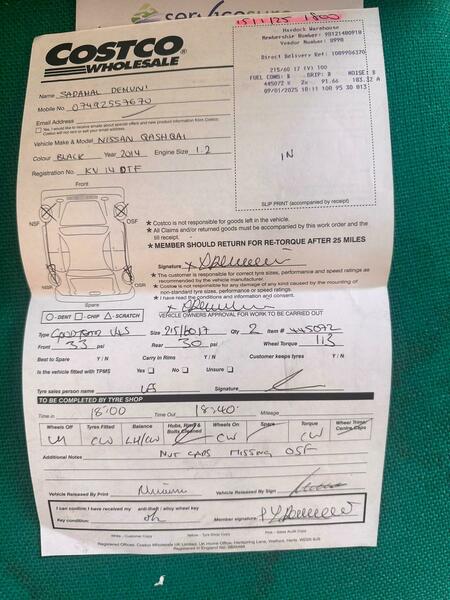 15/1/25 1800
COSTCO
WHOLESALE
Haydock Warehouse
Vendor Number: 8990
215/60 17 (V) 100
FUEL CONS: B GRIP: B NOISE: B
445072 V 2x 91.66 183.32 A
09/01/2025 10:11 108 95 30 013
IN
SLIP PRINT (accompanied by receipt)
Name
Mobile No.
Email Address
Yes, I would like to receive emails about special offers and new product information from Costco.
Costco will not rent or sell your email address.
Vehicle Make & Model NISSAN QASHQAI
Colour BLACK Year 2014 Engine Size 1.2
Registration No. KV 14 DTF
Front
NSF
OSF
NSR
OSR
Spare
★ Costco is not responsible for goods left in the vehicle.
★ All Claims and/or returned goods must be accompanied by this work order and the
till receipt.
★ MEMBER SHOULD RETURN FOR RE-TORQUE AFTER 25 MILES
Signature
★ The customer is responsible for correct tyre sizes, performance and speed ratings as
recommended by the vehicle manufacturer.
★ Costco is not responsible for any damage of any kind caused by the mounting of
non-standard tyre sizes, performance or speed ratings.
★ I have read the conditions and information and consent.
O - DENT □ - CHIP △ - SCRATCH
VEHICLE OWNERS APPROVAL FOR WORK TO BE CARRIED OUT
Type Size 215/60 17 Qty 2 Item # 445072
Front 33 psi Rear 30 psi Wheel Torque 113
Best to Spare Y / N Carry in Rims Y / N Customer keeps tyres Y / N
Is the vehicle fitted with TPMS Yes No Unsure
Tyre sales person name Signature
TO BE COMPLETED BY TYRE SHOP
Time in 18:00 Time Out 18:40 Mileage
Wheels Off Tyres Fitted Balance Hubs, Rims & Bolts Cleaned Wheels On Spare Torque Wheel Trims/ Centre Caps
LH CW LH/CW CW CW
Additional Notes NUT CAPS MISSING OSF
Vehicle Released By Print Vehicle Released By Sign
I can confirm I have received my anti-theft / alloy wheel key
Key condition: ok Member signature:
White - Customer Copy Yellow - Tyre Shop Copy Pink - Sales Audit Copy